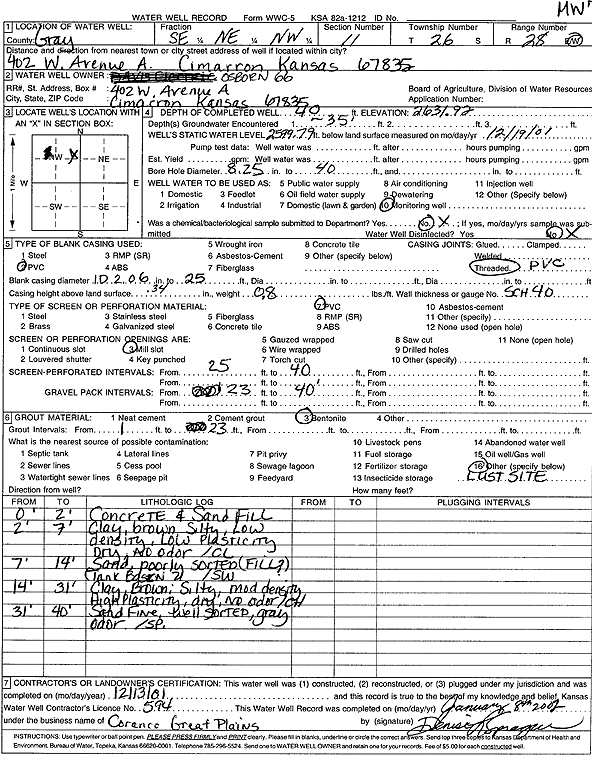 MW
WATER WELL RECORD Form WWC-5 KSA 82a-1212 ID No.
1 LOCATION OF WATER WELL: Fraction Section Number Township Number Range Number
County: Gray SE ¼ NE ¼ NW ¼ 11 T 26 S R 28 E/W
Distance and direction from nearest town or city street address of well if located within city?
402 W. Avenue A. Cimarron Kansas 67835
2 WATER WELL OWNER: Davis Electric OSBORN 66
RR#, St. Address, Box # : 402 W. Avenue A Board of Agriculture, Division of Water Resources
City, State, ZIP Code : Cimarron Kansas 67835 Application Number:
3 LOCATE WELL'S LOCATION WITH AN "X" IN SECTION BOX:
N
NW X NE
W E
SW SE
S
1 Mile
4 DEPTH OF COMPLETED WELL 40 ft. ELEVATION: 2631.92
Depth(s) Groundwater Encountered 1 ~35' ft. 2 ft. 3 ft.
WELL'S STATIC WATER LEVEL 2599.79 ft. below land surface measured on mo/day/yr 12/19/01
Pump test data: Well water was ft. after hours pumping gpm
Est. Yield gpm: Well water was ft. after hours pumping gpm
Bore Hole Diameter 8.25 in. to 40 ft., and in. to ft.
WELL WATER TO BE USED AS: 5 Public water supply 8 Air conditioning 11 Injection well
1 Domestic 3 Feedlot 6 Oil field water supply 9 Dewatering 12 Other (Specify below)
2 Irrigation 4 Industrial 7 Domestic (lawn & garden) 10 Monitoring well
Was a chemical/bacteriological sample submitted to Department? Yes No X ; If yes, mo/day/yrs sample was submitted
Water Well Disinfected? Yes No X
5 TYPE OF BLANK CASING USED: 5 Wrought iron 8 Concrete tile CASING JOINTS: Glued Clamped
1 Steel 3 RMP (SR) 6 Asbestos-Cement 9 Other (specify below) Welded
2 PVC 4 ABS 7 Fiberglass Threaded PVC
Blank casing diameter I.D. 2.06 in. to 25 ft., Dia in. to ft., Dia in. to ft.
Casing height above land surface .34 in., weight 0.8 lbs./ft. Wall thickness or gauge No. SCH 40
TYPE OF SCREEN OR PERFORATION MATERIAL: 7 PVC 10 Asbestos-cement
1 Steel 3 Stainless steel 5 Fiberglass 8 RMP (SR) 11 Other (specify)
2 Brass 4 Galvanized steel 6 Concrete tile 9 ABS 12 None used (open hole)
SCREEN OR PERFORATION OPENINGS ARE: 5 Gauzed wrapped 8 Saw cut 11 None (open hole)
1 Continuous slot 3 Mill slot 6 Wire wrapped 9 Drilled holes
2 Louvered shutter 4 Key punched 7 Torch cut 10 Other (specify)
SCREEN-PERFORATED INTERVALS: From 25 ft. to 40 ft., From ft. to ft.
From ft. to ft., From ft. to ft.
GRAVEL PACK INTERVALS: From 23 ft. to 40' ft., From ft. to ft.
From ft. to ft., From ft. to ft.
6 GROUT MATERIAL: 1 Neat cement 2 Cement grout 3 Bentonite 4 Other
Grout Intervals: From 1 ft. to 23 ft., From ft. to ft., From ft. to ft.
What is the nearest source of possible contamination: 10 Livestock pens 14 Abandoned water well
1 Septic tank 4 Lateral lines 7 Pit privy 11 Fuel storage 15 Oil well/Gas well
2 Sewer lines 5 Cess pool 8 Sewage lagoon 12 Fertilizer storage 16 Other (specify below)
3 Watertight sewer lines 6 Seepage pit 9 Feedyard 13 Insecticide storage LUST SITE
Direction from well? How many feet?
FROM TO LITHOLOGIC LOG FROM TO PLUGGING INTERVALS
0' 2' CONCRETE & Sand FILL
2' 7' Clay, brown Silty, Low
density, Low Plasticity
Dry, NO odor /CL
7' 14' Sand, poorly SORTED (FILL?)
(Tank Basin 2) /SW
14' 31' Clay, Brown, Silty, mod density,
High Plasticity, dry, NO odor/CH
31' 40' Sand Fine, well SORTED, gray
odor /SP.
7 CONTRACTOR'S OR LANDOWNER'S CERTIFICATION: This water well was (1) constructed, (2) reconstructed, or (3) plugged under my jurisdiction and was
completed on (mo/day/year) 12/13/01 and this record is true to the best of my knowledge and belief. Kansas
Water Well Contractor's Licence No. 594 This Water Well Record was completed on (mo/day/yr) January 8th 2002
under the business name of Coranco Great Plains by (signature)
INSTRUCTIONS: Use typewriter or ball point pen. PLEASE PRESS FIRMLY and PRINT clearly. Please fill in blanks, underline or circle the correct answers. Send top three copies to Kansas Department of Health and
Environment, Bureau of Water, Topeka, Kansas 66620-0001. Telephone 785-296-5524. Send one to WATER WELL OWNER and retain one for your records. Fee of $5.00 for each constructed well.